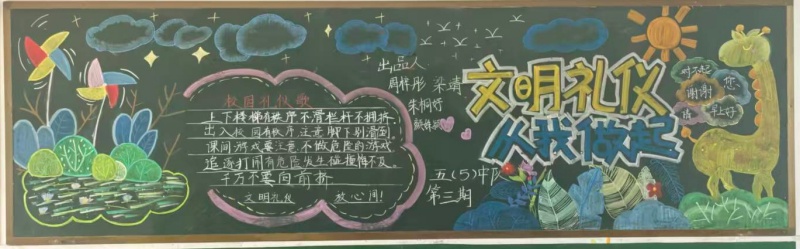 校园礼仪歌
上下楼梯有秩序不滑栏杆不拥挤,
出入校园有秩序注意脚下别滑倒,
课间游戏要注意不做危险的游戏
追逐打闹有危险发生碰撞悔不及。
千万不要向前挤
文明礼仪 放心间!
出品人
周梓彤 梁靖
朱桐妤
文明礼仪
从我做起
五(5)中队
第三期
对不起
您
谢谢
请
早上好